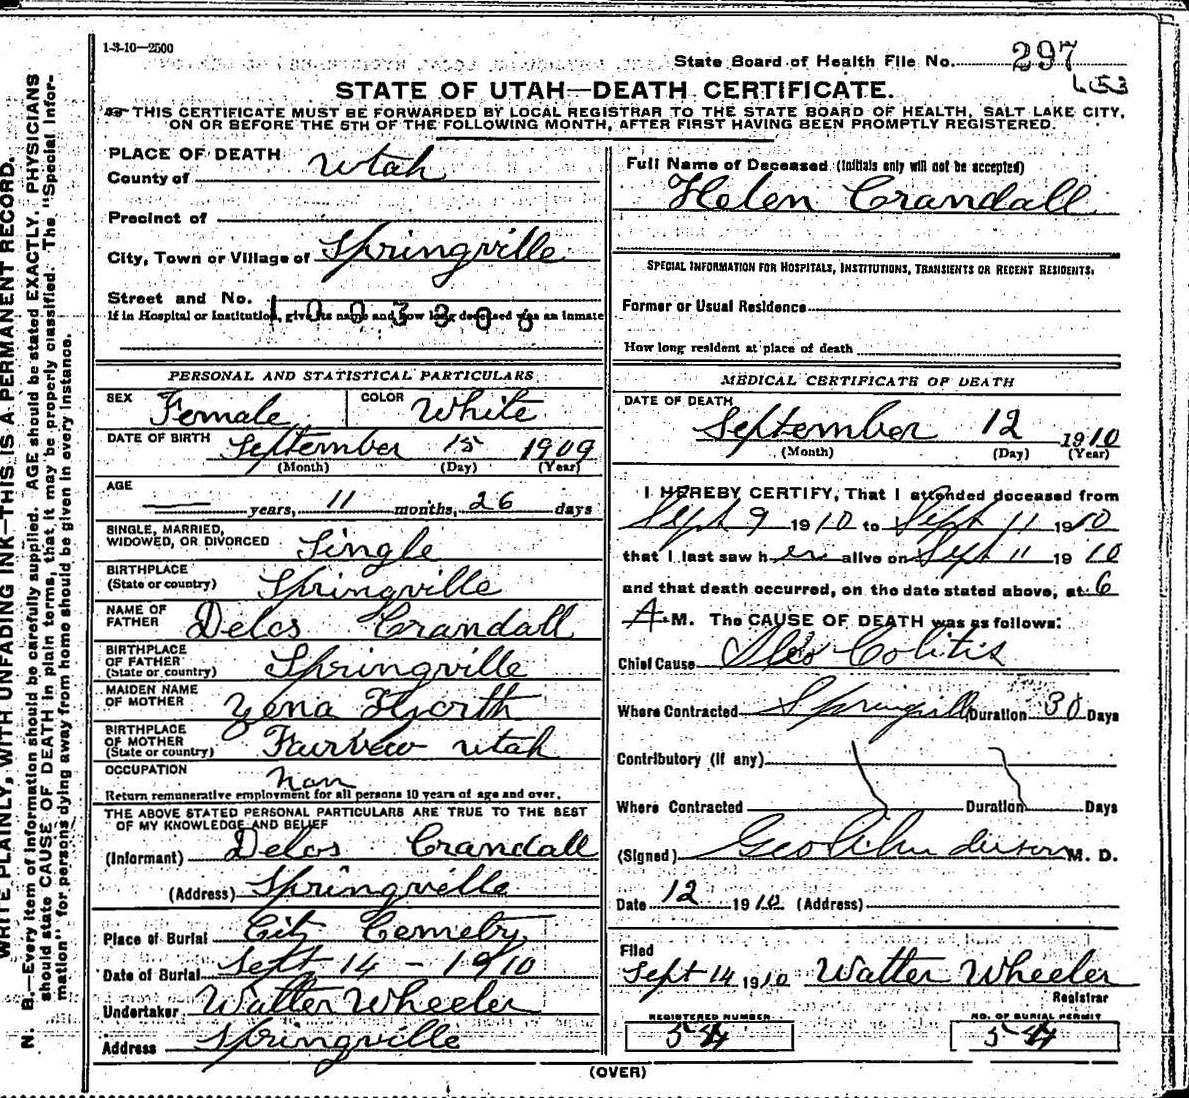 1-3-10—2500
State Board of Health File No. 297
653
STATE OF UTAH—DEATH CERTIFICATE.
THIS CERTIFICATE MUST BE FORWARDED BY LOCAL REGISTRAR TO THE STATE BOARD OF HEALTH, SALT LAKE CITY,
ON OR BEFORE THE 5TH OF THE FOLLOWING MONTH, AFTER FIRST HAVING BEEN PROMPTLY REGISTERED.
PLACE OF DEATH
County of Utah
Precinct of
City, Town or Village of Springville
Street and No.
1003308
If in Hospital or Institution, give its name and how long deceased was an inmate
PERSONAL AND STATISTICAL PARTICULARS
SEX Female COLOR White
DATE OF BIRTH September 15 1909
(Month) (Day) (Year)
AGE
years, 11 months, 26 days
SINGLE, MARRIED,
WIDOWED, OR DIVORCED Single
BIRTHPLACE
(State or country) Springville
NAME OF
FATHER Delos Crandall
BIRTHPLACE
OF FATHER
(State or country) Springville
MAIDEN NAME
OF MOTHER Yena Hjorth
BIRTHPLACE
OF MOTHER
(State or country) Fairview Utah
OCCUPATION Non
Return remunerative employment for all persons 10 years of age and over.
THE ABOVE STATED PERSONAL PARTICULARS ARE TRUE TO THE BEST
OF MY KNOWLEDGE AND BELIEF
(Informant) Delos Crandall
(Address) Springville
Place of Burial City Cemetry
Date of Burial Sept 14 - 1910
Undertaker Walter Wheeler
Address Springville
Full Name of Deceased (Initials only will not be accepted)
Helen Crandall
SPECIAL INFORMATION FOR HOSPITALS, INSTITUTIONS, TRANSIENTS OR RECENT RESIDENTS.
Former or Usual Residence
How long resident at place of death
MEDICAL CERTIFICATE OF DEATH
DATE OF DEATH
September 12 1910
(Month) (Day) (Year)
I HEREBY CERTIFY, That I attended deceased from
Sept 9 1910 to Sept 11 1910
that I last saw her alive on Sept 11 1910
and that death occurred, on the date stated above, at 6
A.M. The CAUSE OF DEATH was as follows:
Chief Cause Ileo Colitis
Where Contracted Springville Duration 30 Days
Contributory (if any)
Where Contracted Duration Days
(Signed) Geo M. D.
Date 12 1910 (Address)
Filed
Sept 14 1910 Walter Wheeler
Registrar
REGISTERED NUMBER NO. OF BURIAL PERMIT
54 54
(OVER)
WRITE PLAINLY, WITH UNFADING INK—THIS IS A PERMANENT RECORD.
N. B.—Every item of information should be carefully supplied. AGE should be stated EXACTLY. PHYSICIANS
should state CAUSE OF DEATH in plain terms, that it may be properly classified. The "Special Infor-
mation" for persons dying away from home should be given in every instance.